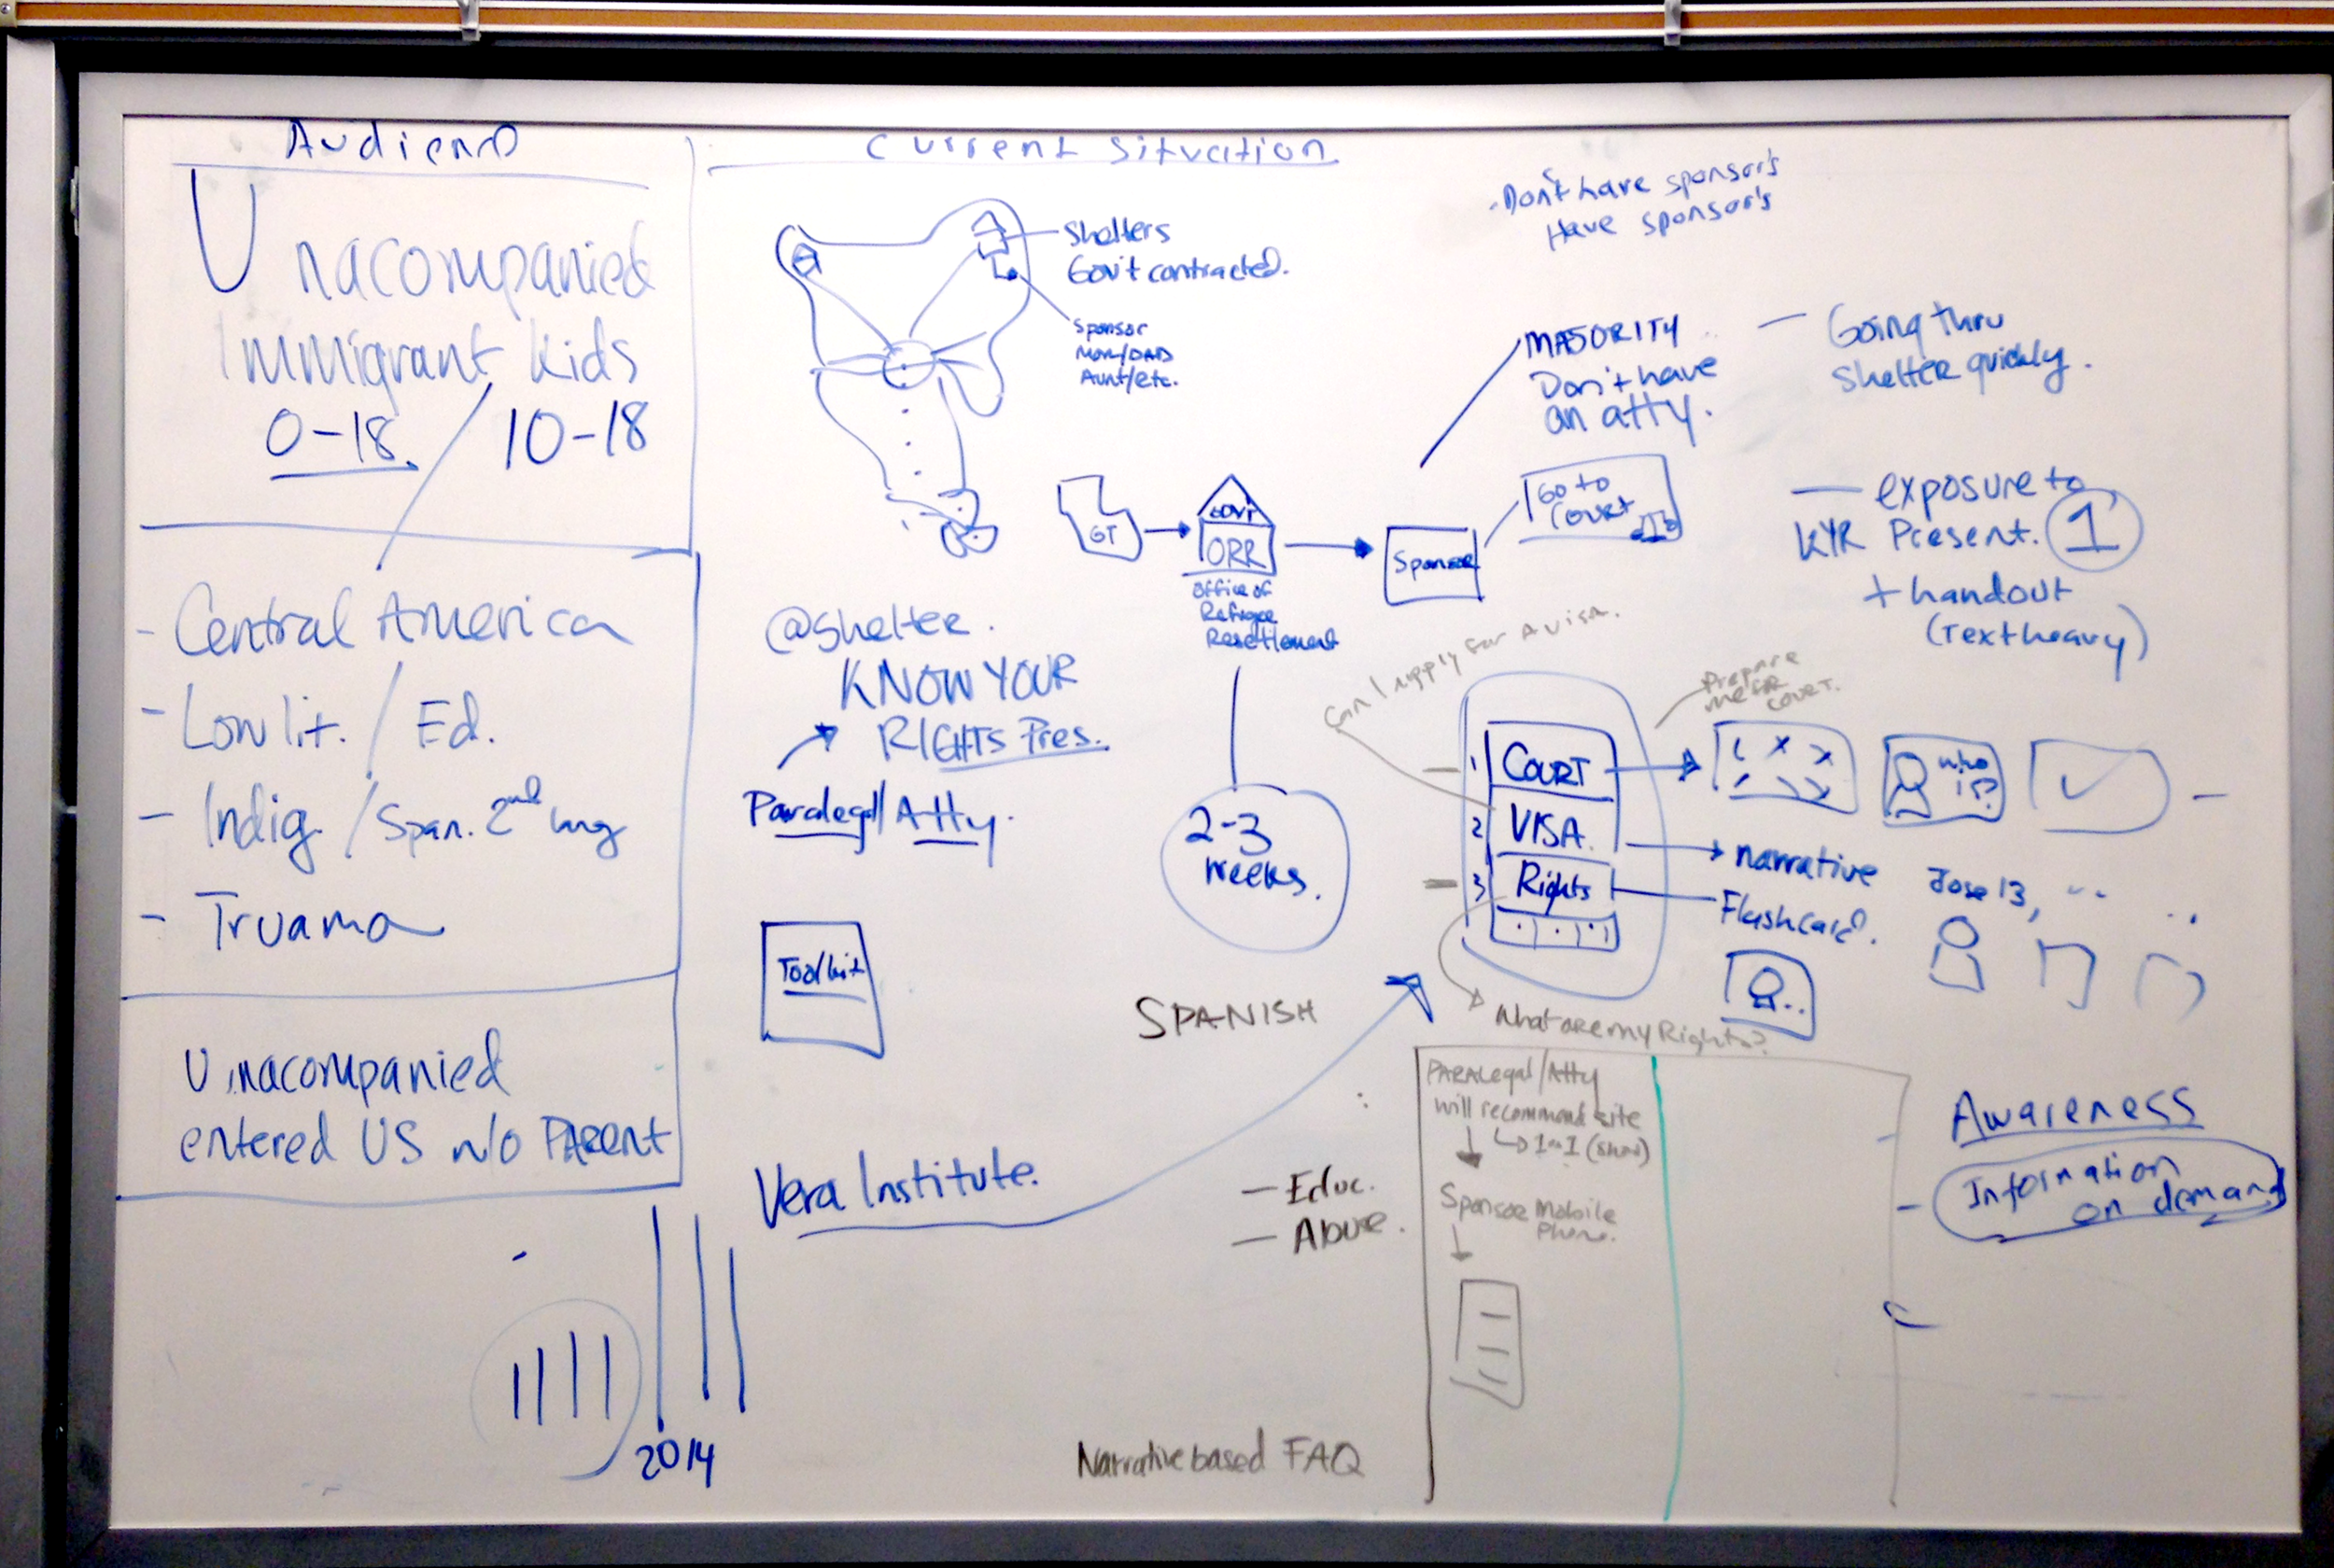 Audience
Unacompanied
Immigrant Kids
0-18 / 10-18
- Central America
- Low lit. / Ed.
- Indig. / Span. 2nd lang
- Truama
Unacompanied
entered US w/o PARENT
2014
Current Situation
Shelters
Gov't contracted.
Sponsor
MOM/DAD
Aunt/etc.
Don't have sponsor's
Have sponsor's
MAJORITY
Don't have
an atty.
— Going thru
Shelter quickly.
GT
GOVT
ORR
Office of
Refugee
Resettlement
Sponsor
Go to
Court
— exposure to
KYR Present. 1
+ handout
(Text heavy)
@shelter.
KNOW YOUR
RIGHTS Pres.
Paralegal/Atty.
2-3
weeks.
Toolkit
SPANISH
Can I apply for a visa.
Prepare
me for
court.
1 COURT
2 VISA.
3 Rights
who
is?
narrative
Jose 13,
Flashcard.
What are my Rights?
Vera Institute.
- Educ.
- Abuse.
PARALegal/Atty
will recommend site
1 on 1
Sponsor Mobile
Phone.
Awareness
- Information
on demand
Narrative based FAQ